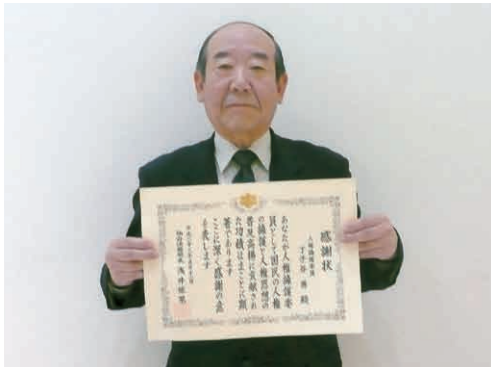 感謝状
人権擁護委員
殿
あなたが人権擁護委
員として国民の人権
の擁護と人権思想の
普及高揚に貢献され
た功績はまことに顕
著であります
ここに深く感謝の意
を表します